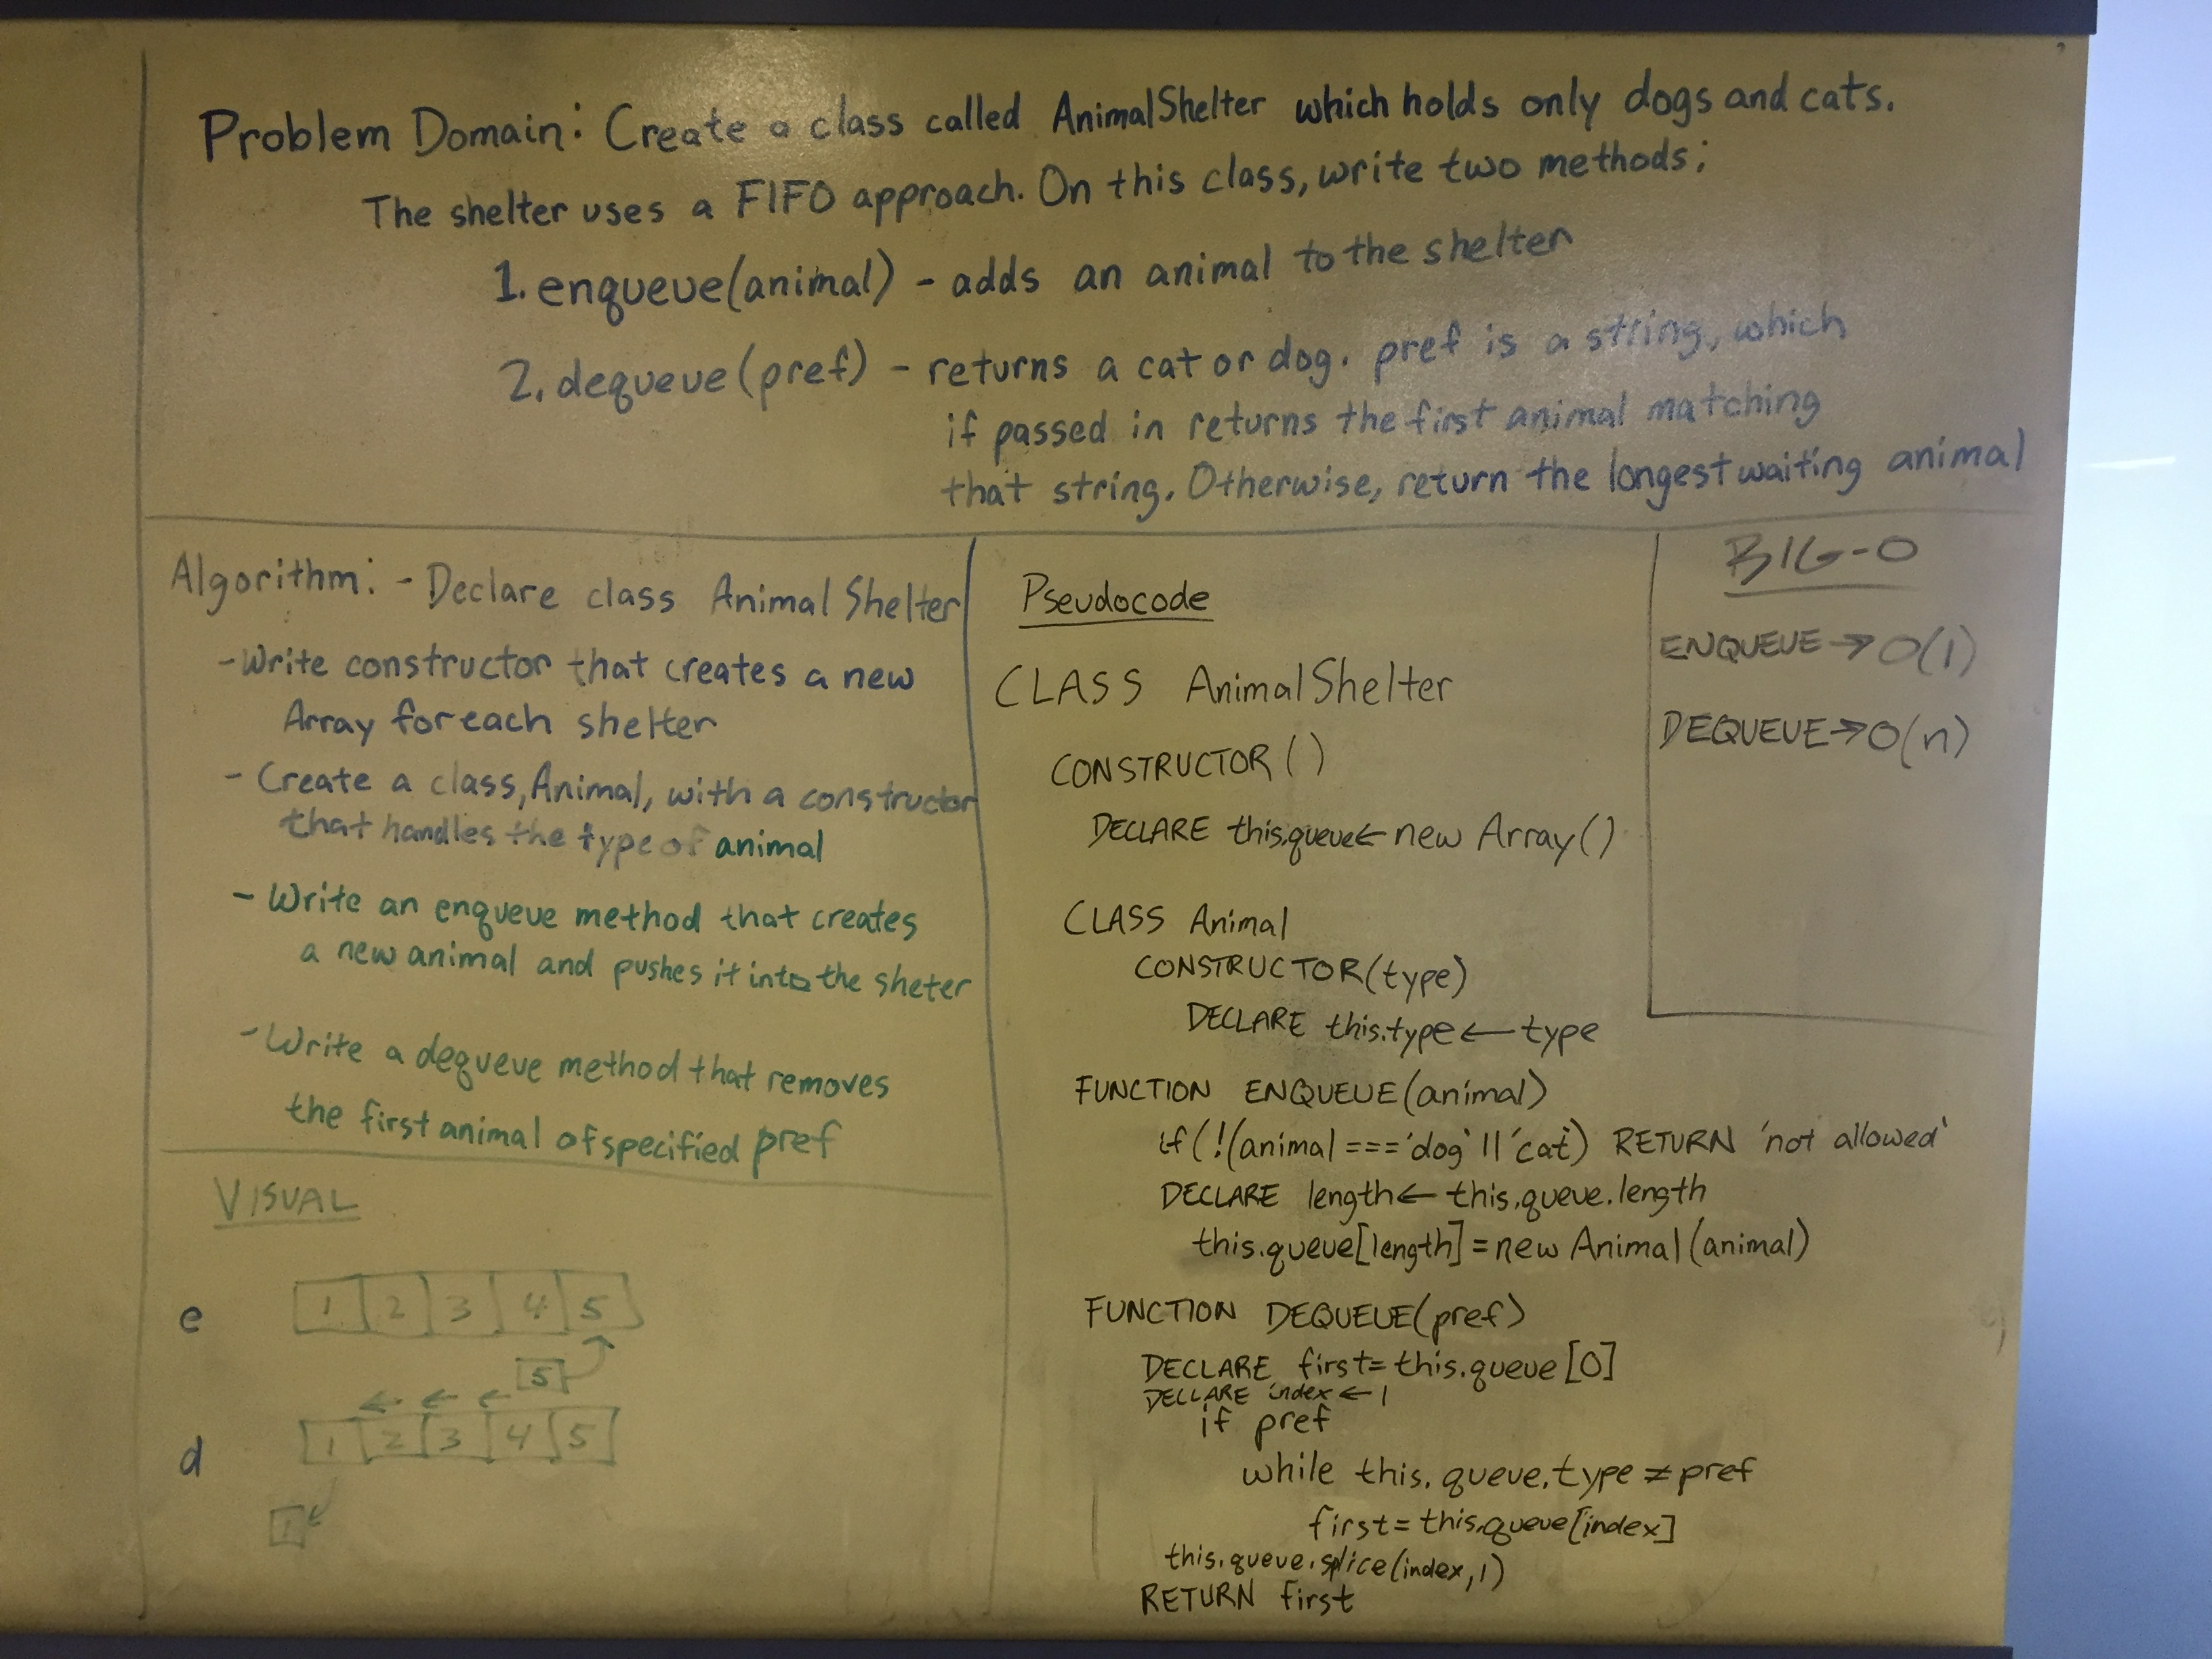 Problem Domain: Create a class called AnimalShelter which holds only dogs and cats.
The shelter uses a FIFO approach. On this class, write two methods;
1. enqueue(animal) - adds an animal to the shelter
2. dequeue(pref) - returns a cat or dog. pref is a string, which
if passed in returns the first animal matching
that string. Otherwise, return the longest waiting animal
Algorithm: - Declare class AnimalShelter
- Write constructor that creates a new
Array for each shelter
- Create a class, Animal, with a constructor
that handles the type of animal
- Write an enqueue method that creates
a new animal and pushes it into the sheter
- Write a dequeue method that removes
the first animal of specified pref
VISUAL
e 1 2 3 4 5
5
d 1 2 3 4 5
1
Pseudocode
CLASS AnimalShelter
CONSTRUCTOR ()
DECLARE this.queue← new Array()
CLASS Animal
CONSTRUCTOR(type)
DECLARE this.type ← type
FUNCTION ENQUEUE(animal)
if (!(animal === 'dog' || 'cat') RETURN 'not allowed'
DECLARE length ← this.queue.length
this.queue[length] = new Animal(animal)
FUNCTION DEQUEUE(pref)
DECLARE first = this.queue[0]
DECLARE index ← 1
if pref
while this.queue.type ≠ pref
first = this.queue[index]
this.queue.splice(index,1)
RETURN first
BIG-O
ENQUEUE → O(1)
DEQUEUE → O(n)